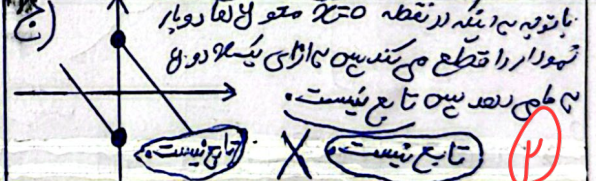 ج)
با توجه به اینکه در نقطه x=0 محور y ها دو بار
نمودار را قطع می کند پس به ازای یک x دو y
به ما می دهد پس تابع نیست.
تابع نیست. × تابع نیست.
۲